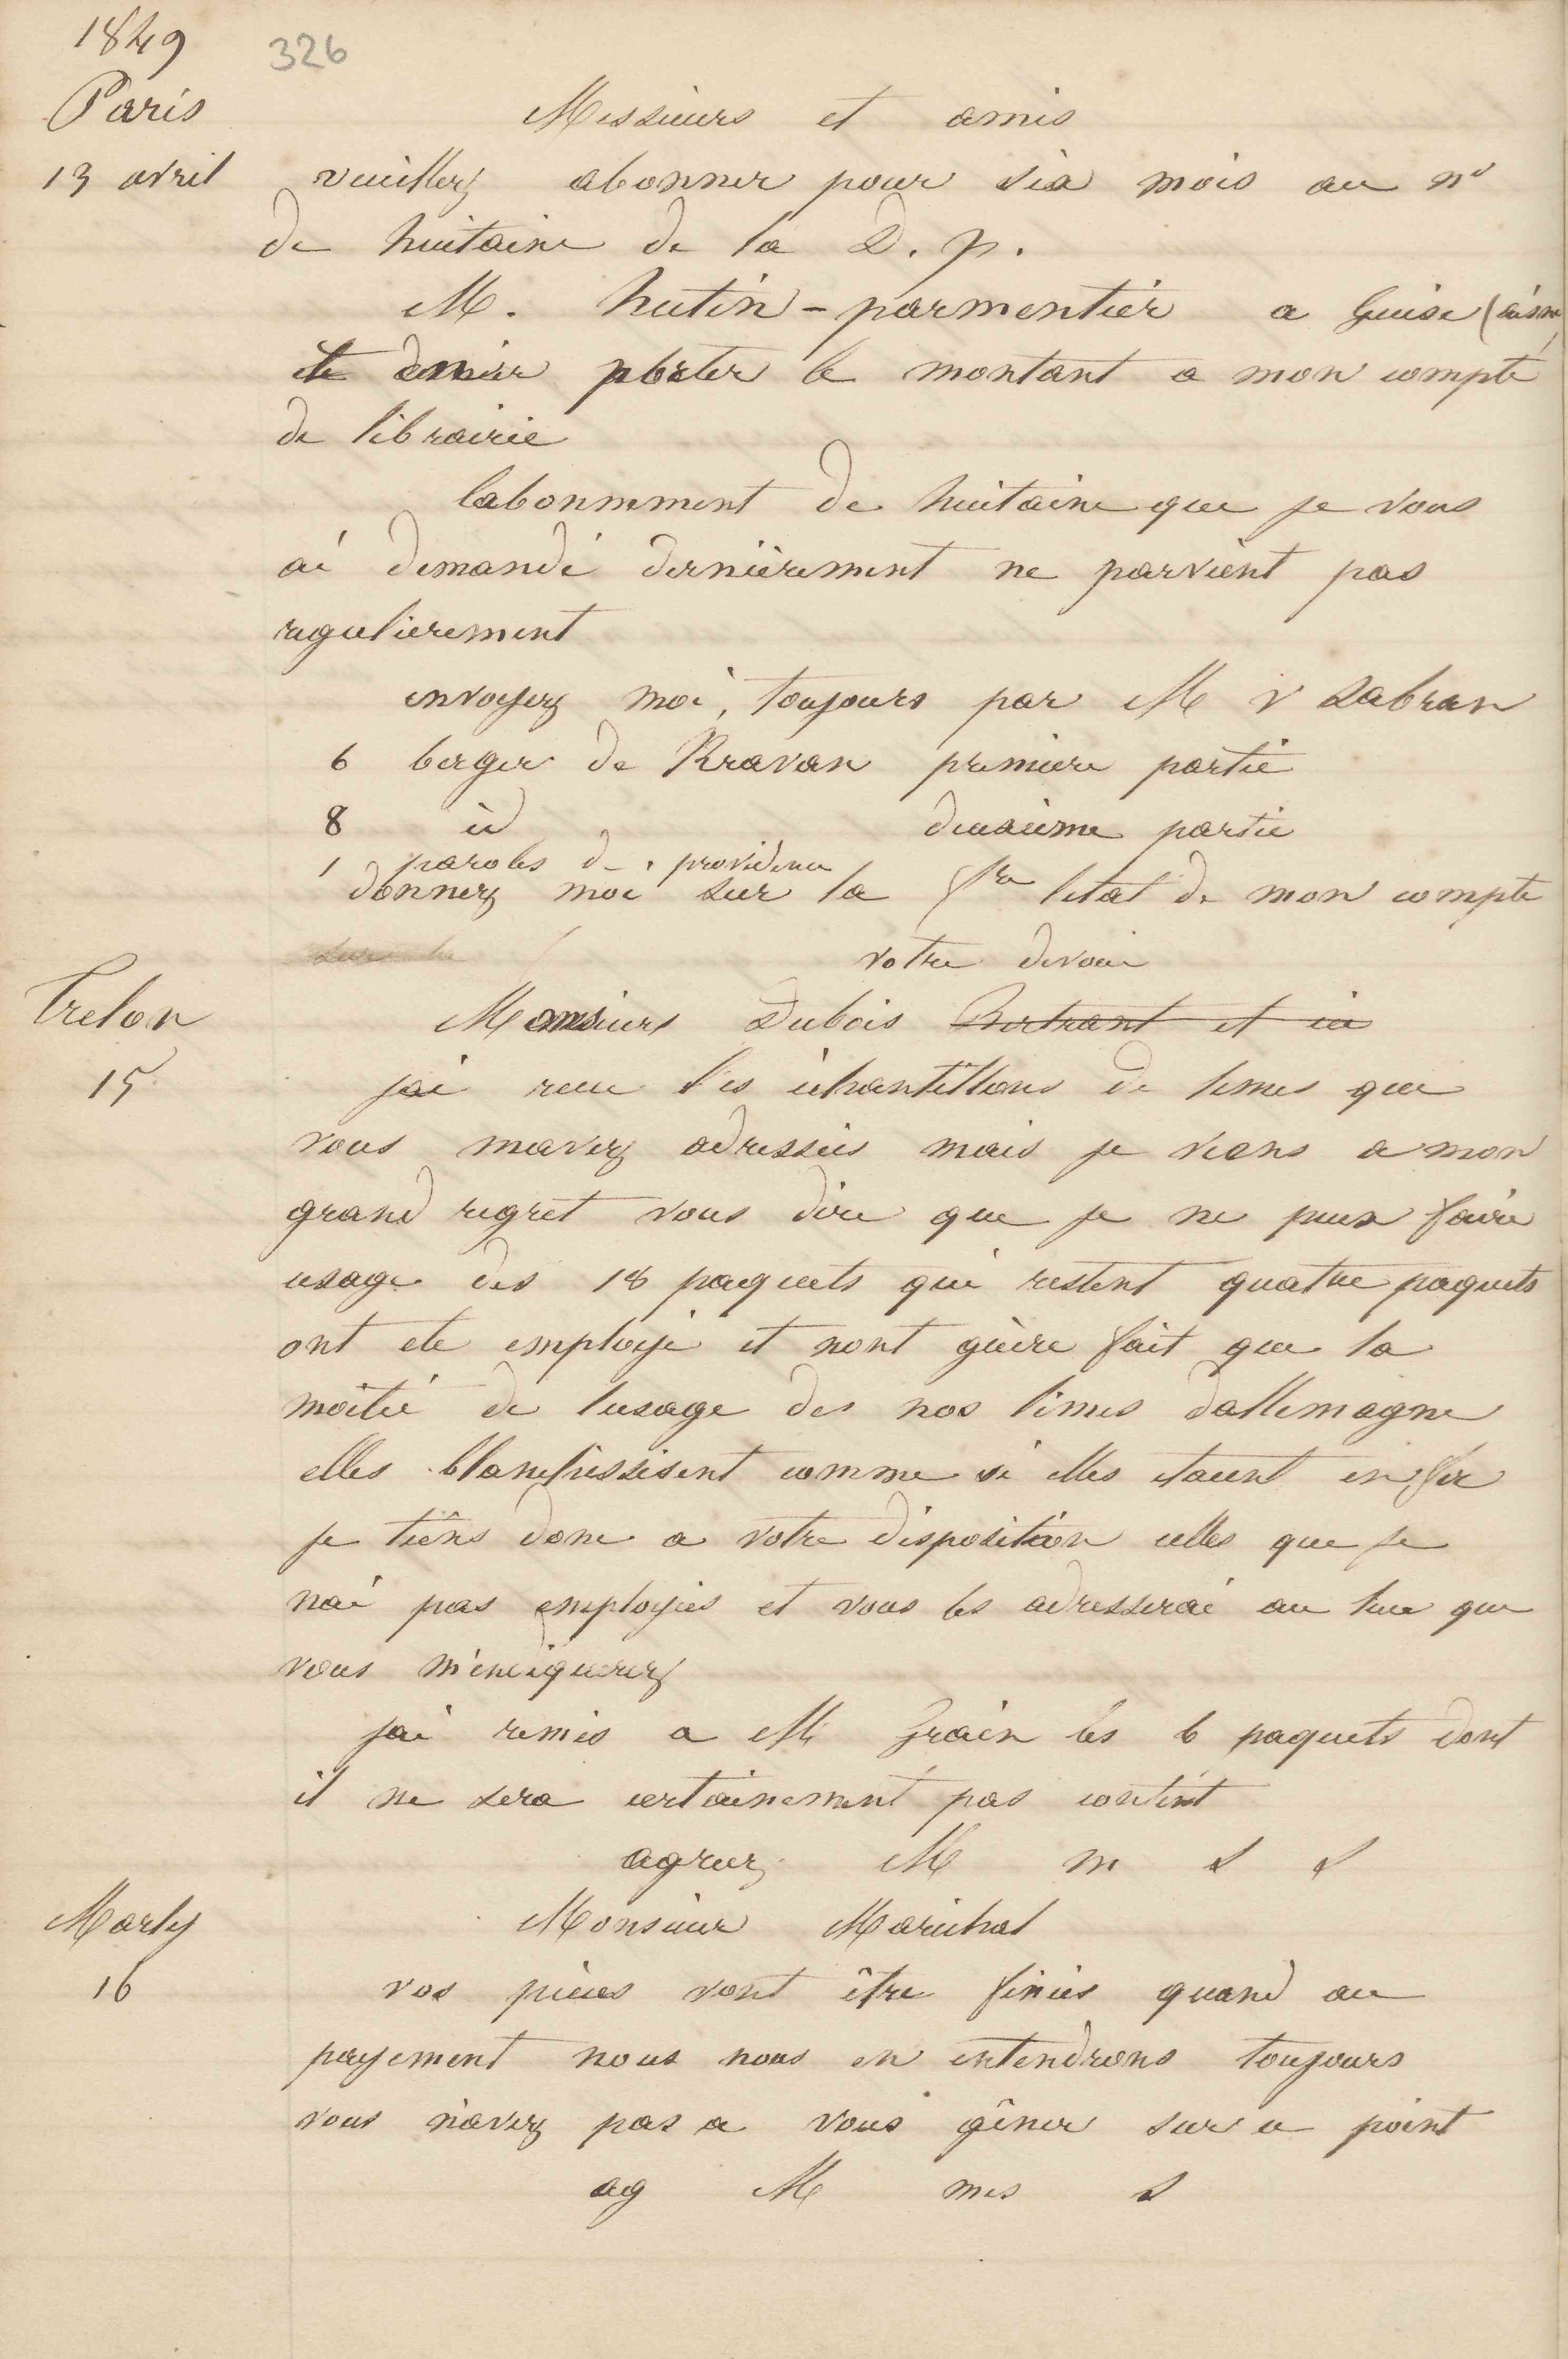 1849
326
Paris
Messieurs et amis
13 avril
veuillez abonner pour six mois au nº
de huitaine de la D. p.
M. hutin-parmentier a Guise (aisne
et porter le montant a mon compte
de librairie
labonnement de huitaine que je vous
ai demandé dernièrement ne parvient pas
regulierement
envoyez moi, toujours par M v Labran
6 berger de Kravan premiere partie
8 id deuxième partie
1 paroles de providence
donnez moi sur la fre letat de mon compte
sur la f
votre devoué
Trelon
Monsieur Dubois Bertrant et cie
15
jai recu les échantillons de limes que
vous mavez adressées mais je viens a mon
grand regret vous dire que je ne peux faire
usage des 18 paquets qui restent quatre paquets
ont ete employé et nont guère fait que la
moitié de lusage des nos limes dallemagne
elles blanchissisent comme si elles etaient en fer
je tiens donc a votre disposition celles que je
nai pas employées et vous les adresserai au lieu que
vous m'indiquerez
jai remis a M Grain les 6 paquets dont
il ne sera certainement pas content
agreez M m s s
Marly
Monsieur Maréchal
16
vos pièces vont être finies quand au
payement nous nous en entendrons toujours
vous n'avez pas a vous gêner sur ce point
ag M mes s